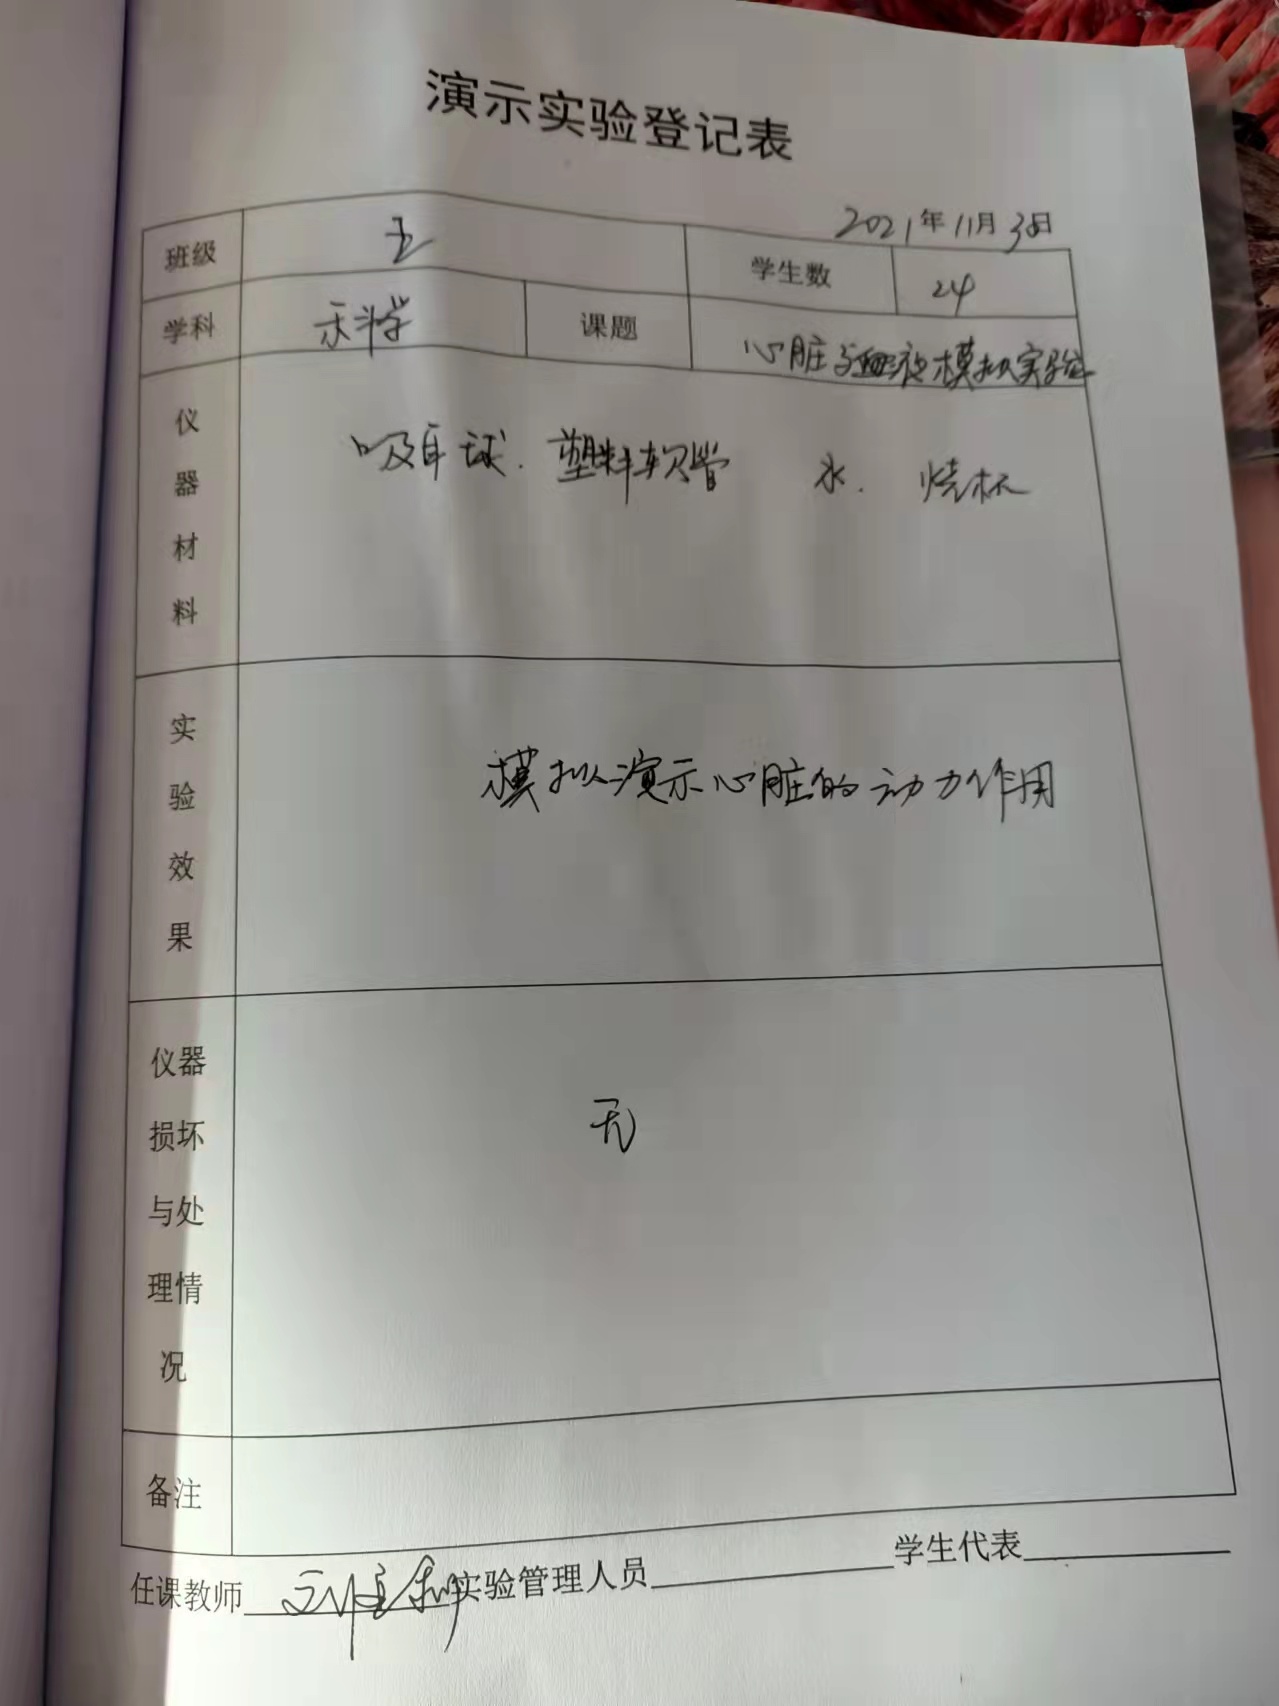 演示实验登记表
2021年11月3日
班级 五 学生数 24
学科 科学 课题 心脏与血液模拟实验
仪器材料 吸耳球. 塑料软管 水. 烧杯
实验效果 模拟演示心脏的动力作用
仪器损坏与处理情况 无
备注
任课教师 实验管理人员 学生代表